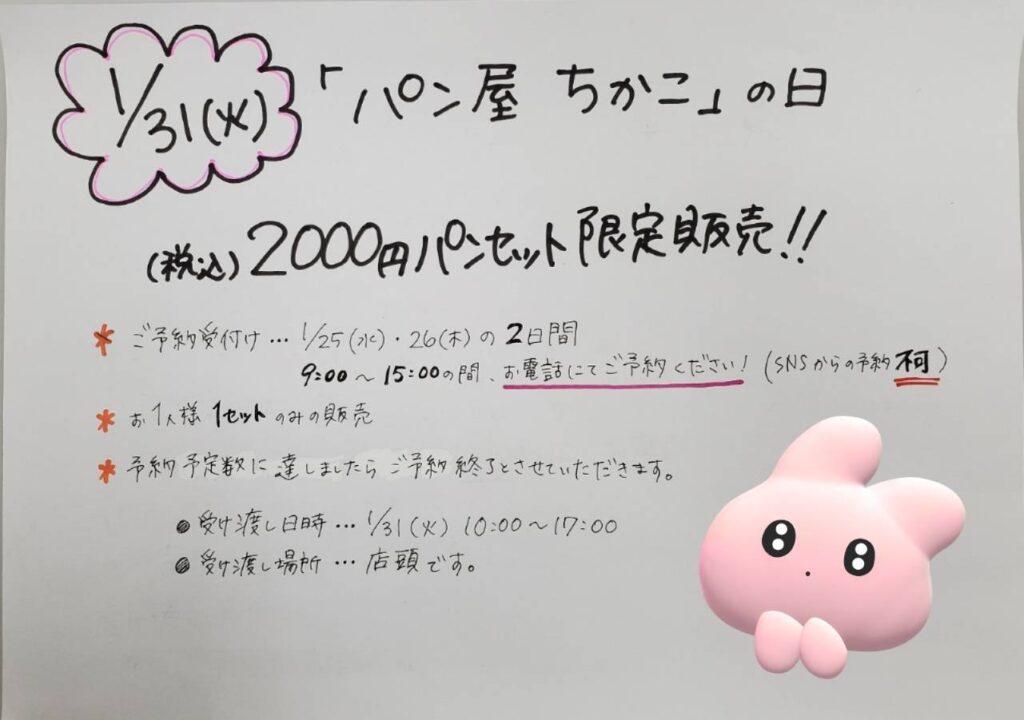 1/31(火) 「パン屋 ちかこ」の日
(税込)2000円パンセット限定販売!!
* ご予約受付け…1/25(水)・26(木)の2日間
9:00～15:00の間、お電話にてご予約ください!(SNSからの予約不可)
* お1人様1セットのみの販売
* 予約予定数に達しましたらご予約終了とさせていただきます。
● 受け渡し日時…1/31(火)10:00～17:00
● 受け渡し場所…店頭です。